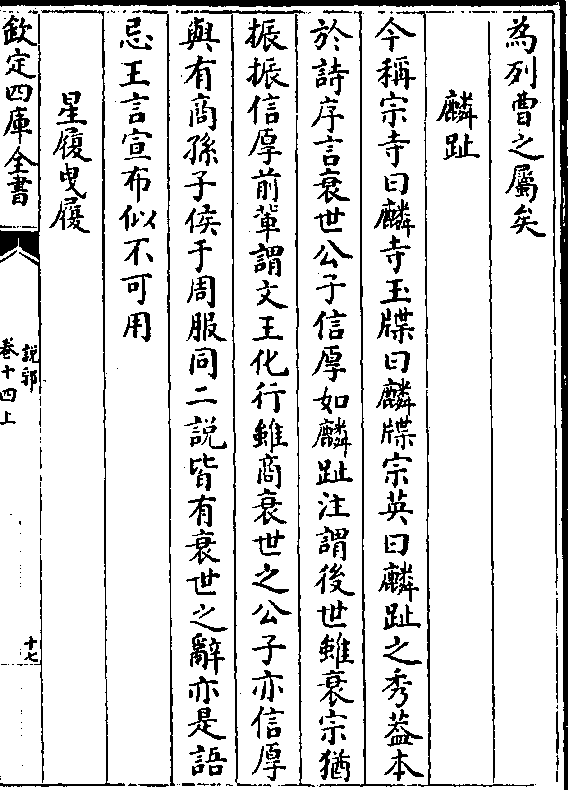 為列曹之屬矣
麟趾
今稱宗寺曰麟寺玉牒曰麟牒宗英曰麟趾之秀葢本
於詩序言衰世公子信厚如麟趾注謂後世雖衰宗猶
振振信厚前輩謂文王化行雖商衰世之公子亦信厚
與有商孫子侯于周服同二説皆有衰世之辭亦是語
忌王言宣布似不可用
星履曵履
欽定四庫全書
説郛
卷十四上
十七